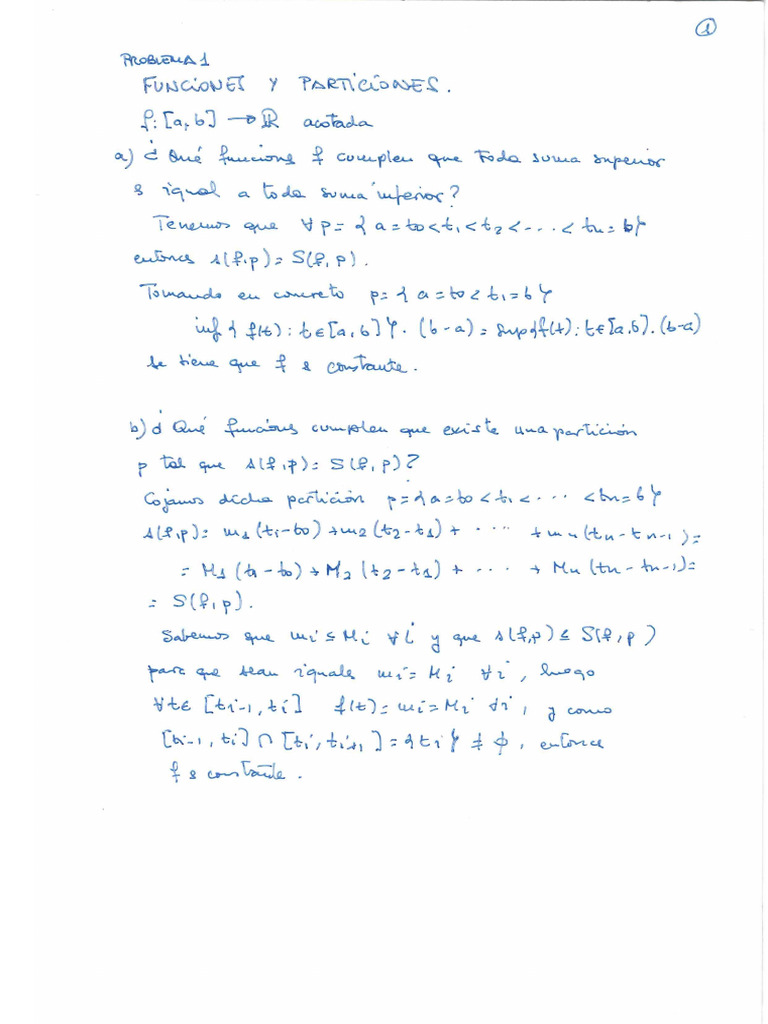 1
PROBLEMA 1
FUNCIONES Y PARTICIONES.
f: [a, b] → ℝ acotada
a) ¿Qué funciones f cumplen que toda suma superior
es igual a toda suma inferior?
Tenemos que ∀ p = { a = t0 < t1 < t2 < ... < tn = b}
entonces s(f,p) = S(f, p).
Tomando en concreto p = { a = t0 < t1 = b }
inf { f(t) : t ∈ [a, b] } · (b - a) = sup { f(t) : t ∈ [a, b] . (b-a)
se tiene que f es constante.
b) ¿Qué funciones cumplen que existe una partición
p tal que s(f,p) = S(f, p)?
Cojamos dicha partición p = { a = t0 < t1 < ... < tn = b }
s(f,p) = m1 (t1 - t0) + m2 (t2 - t1) + .... + mn (tn - tn-1) =
= M1 (t1 - t0) + M2 (t2 - t1) + .... + Mn (tn - tn-1) =
= S(f, p).
Sabemos que mi ≤ Mi ∀i y que s(f,p) ≤ S(f, p)
para que sean iguales mi = Mi ∀i, luego
∀t ∈ [ti-1, ti] f(t) = mi = Mi ∀i, y como
[ti-1, ti] ∩ [ti, ti+1] = { ti } ≠ ϕ, entonces
f es constante.